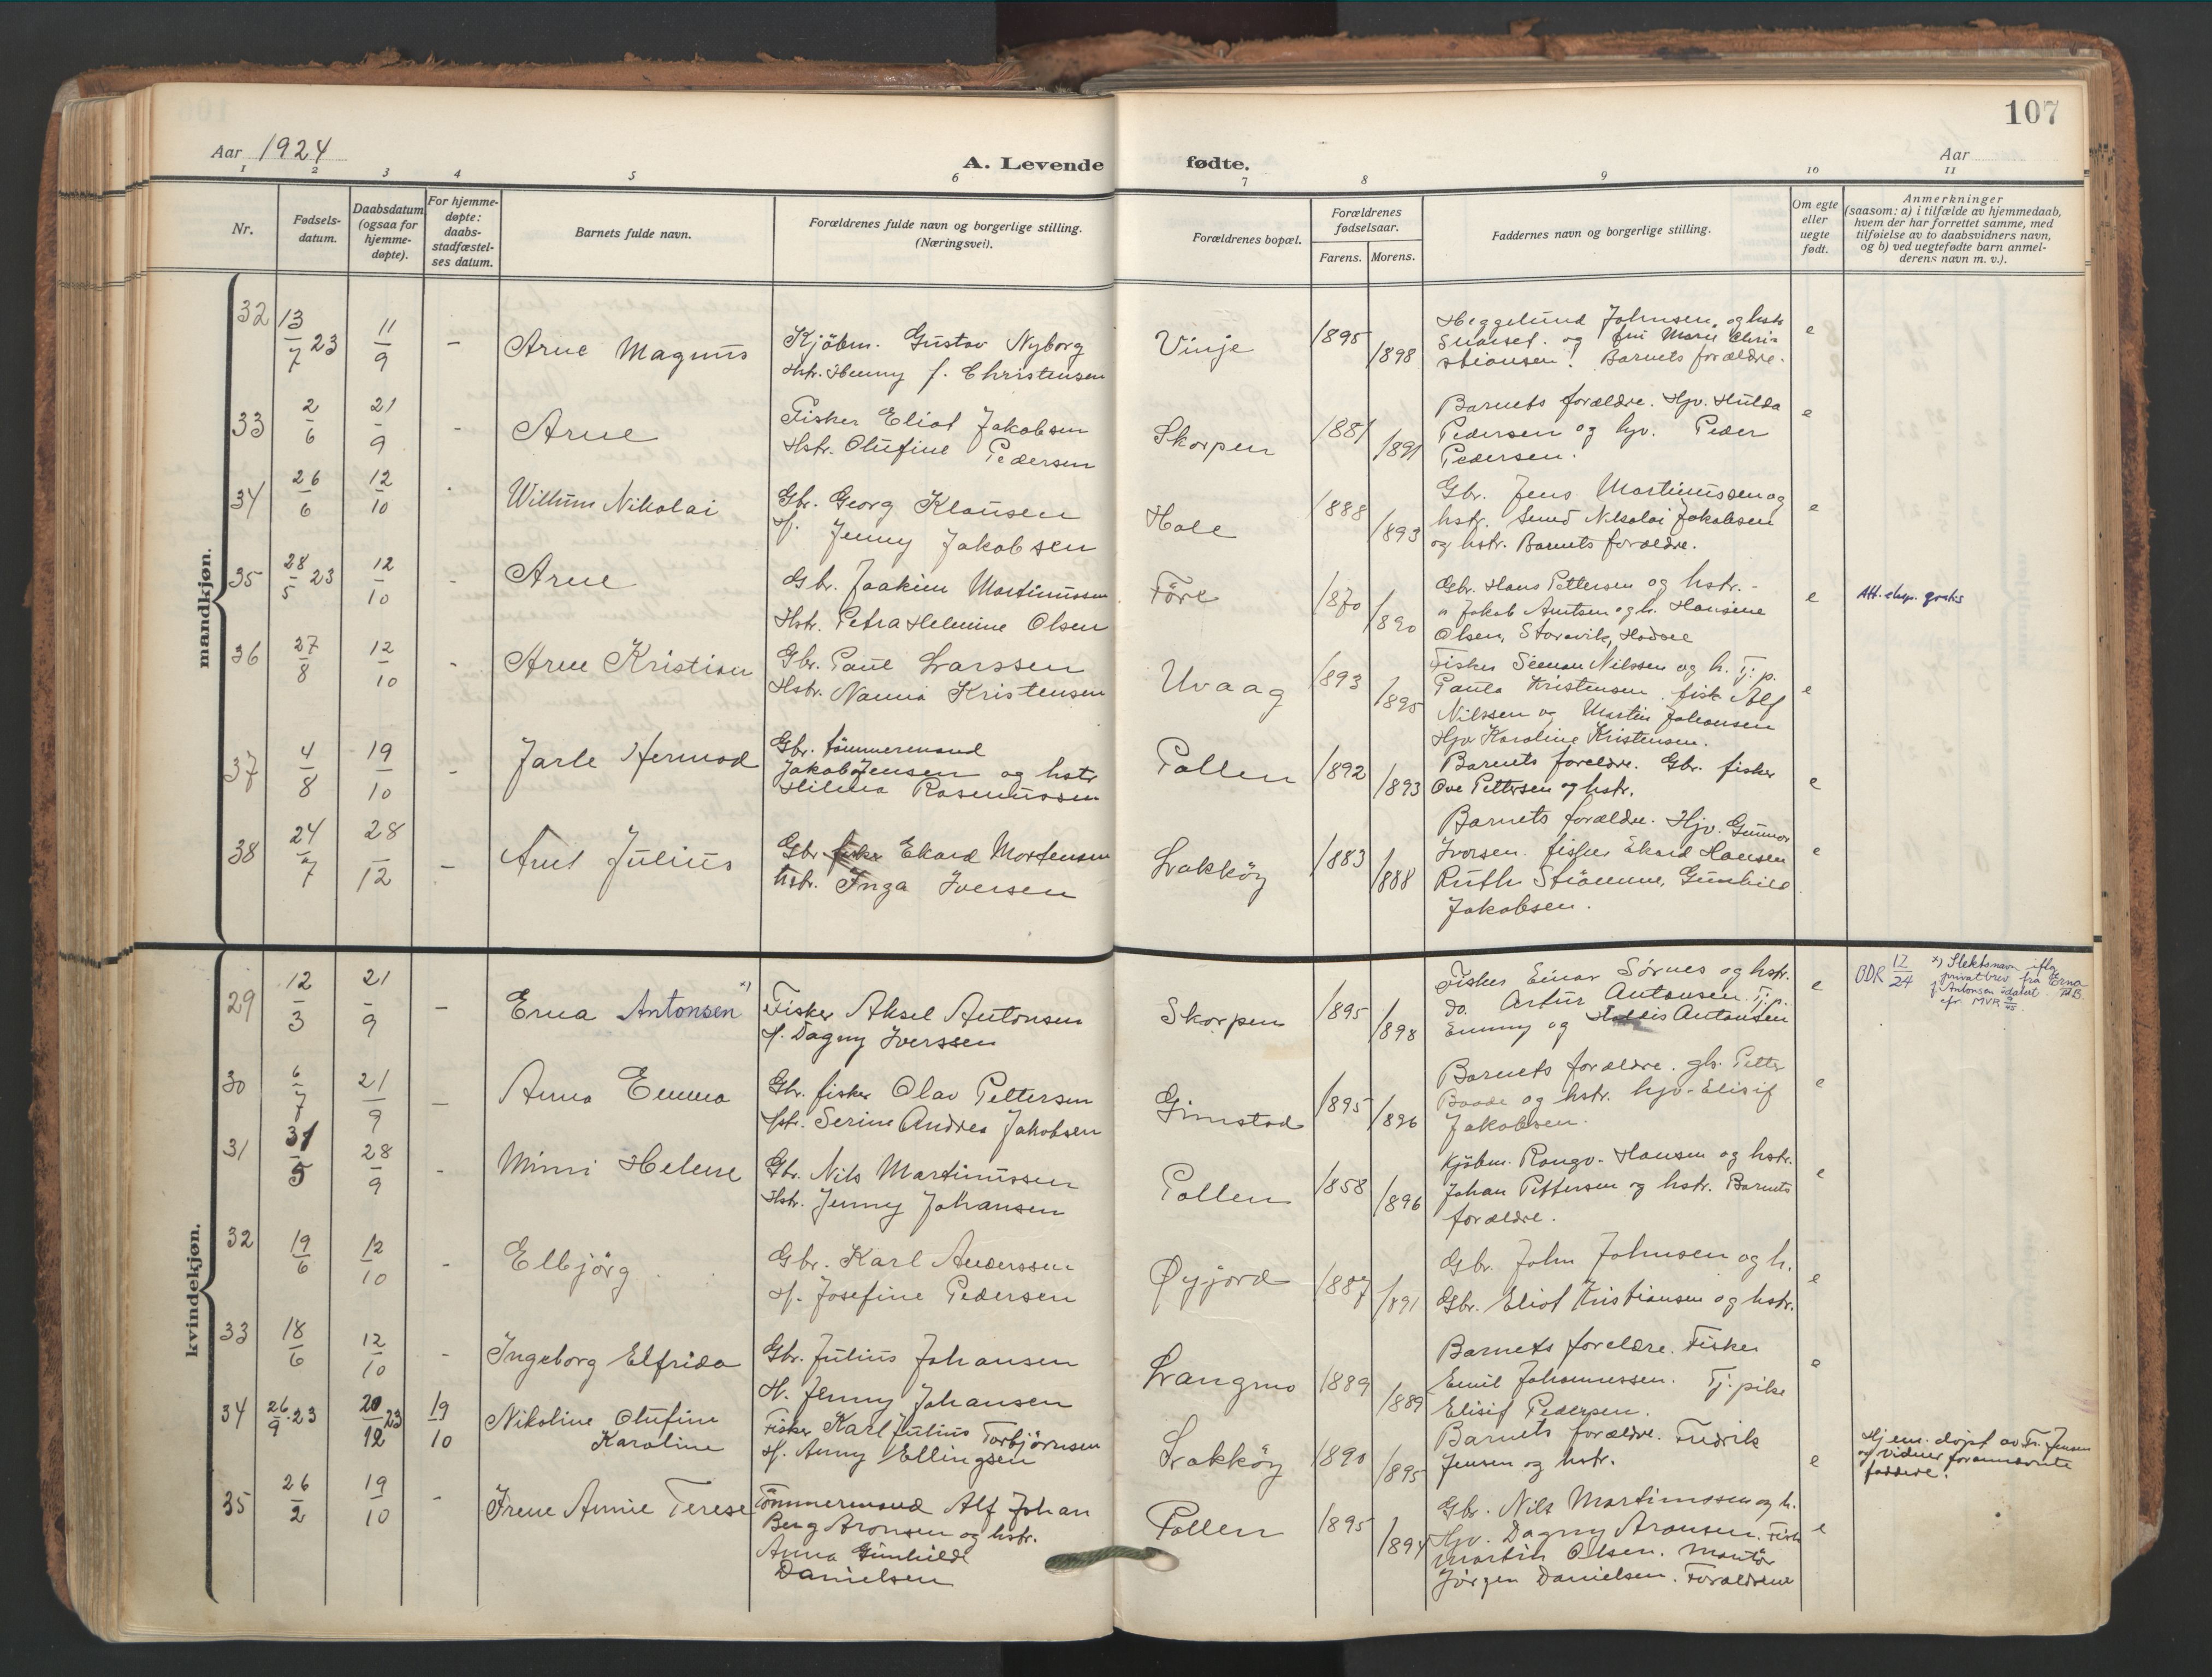 107
Aar 1924
A. Levende fødte.
Aar
1 2 3 4 5 6 7 8 9 10 11
Nr.
Fødsels-
datum.
Daabsdatum
(ogsaa for
hjemme-
døpte).
For hjemme-
døpte:
daabs-
stadfæstel-
ses datum.
Barnets fulde navn.
Forældrenes fulde navn og borgerlige stilling.
(Næringsvei).
Forældrenes bopæl.
Forældrenes
fødselsaar.
Farens. Morens.
Faddernes navn og borgerlige stilling.
Om egte
eller
uegte
født.
Anmerkninger
(saasom: a) i tilfælde av hjemmedaab,
hvem der har forrettet samme, med
tilføielse av to daabsvidners navn,
og b) ved uegtefødte barn anmel-
derens navn m. v.).
mandkjøn.
32 13/7 23 11/9 - Arne Magnus
Kjöbm. Gustav Nyborg
Hstr. Henny f. Christensen
Vinje 1895 1898
Heggelund Johnsen og hstr
og fru Marie Chri-
stiansen! Barnets forældre.
e
33 2/6 21/9 - Arne
Fisker Eliot Jakobsen
Hstr. Olufine Pedersen
Skorpen 1881 1891
Barnets forældre. Hjv. Hulda
Pedersen og hjv. Peder
Pedersen.
e
34 26/6 12/10 - Willum Nikolai
Gbr. Georg Klausen
H. Jenny Jakobsen
Hole 1888 1893
Gbr. Jens Martinussen og
hstr. Smed Nikolai Jakobsen
og hstr. Barnets forældre.
e
35 28/5 23 12/10 - Arne
Gbr. Joakim Martinussen
Hstr. Petra Helmine Olsen
Före 1870 1890
Gbr. Hans Pettersen og hstr. -
" Jakob Amtsen og h. Hansine
Olsen, Storvik, Hadsel
e
Att. eksp. gratis
36 27/8 12/10 - Arne Kristian
Gbr. Paul Larssen
Hstr. Nanna Kristensen
Uvaag 1893 1895
Fisker Simon Nilssen og h. Tj. p.
Paula Kristensen. fisk Alf
Nilssen og Martin Johansen
Hjv Karoline Kristensen.
e
37 4/8 19/10 - Jarle Hermod
Gbr. tömmermand
Jakob Jensen og hstr
Hilma Rasmussen
Pollen 1892 1893
Barnets foreldre. Gbr. fisker
Ove Pettersen og hstr.
e
38 24/7 28/12 - Arnt Julius
Gbr fisker Ekard Mortensen
hstr. Inga Iversen
Lakköy 1883 1888
Barnets forældre. Hjv. Gunvor
Iversen. fisker Ekard Hansen
Ruth Strömme, Gunhild
Jakobsen.
e
kvindekjøn.
29 12/3 21/9 - Erna Antonsen x)
Fisker Aksel Antonsen
H. Dagny Iverssen
Skorpen 1895 1898
Fisker Einar Sörnes og hstr.
Do. Artur Antonsen. Tj. p.
Emmy og Antonsen
e
BDR 12/24
x) Slektsnavn iflg.
privat brev fra Erna
f. Antonsen udatert.
cfr. MVR
30 6/7 21/9 - Anna Emma
Gbr. fisker Olav Pettersen
Hstr. Serine Andrea Jakobsen
Gimstad 1895 1896
Barnets forældre. gbr. Petter
Baade og hstr. hjv. Elisif
Jakobsen.
e
31 31/5 28/9 - Mimi Helene
Gbr. Nils Martinussen
Hstr. Jenny Johansen
Pollen 1858 1896
Kjöbm. Rangv. Hansen og hstr.
Johan Pettersen og hstr. Barnets
forældre.
e
32 19/6 12/10 - Elbjörg
Gbr. Karl Anderssen
H. Josefine Pedersen
Øyjord 1887 1891
Gbr. John Johnsen og h.
Gbr. Eliot Kristiansen og hstr.
e
33 18/6 12/10 - Ingeborg Elfrida
Gbr. Julius Johansen
H. Jenny Johansen
Langmo 1889 1889
Barnets forældre. Fisker
Emil Johannessen. Tj. pike
Elisif Pedersen.
e
34 26/9 23 20/12 23 19/10 Nikoline Olufine
Karoline
Fisker Karl Julius Torbjörnsen
H. Anny Ellingsen
Lakköy 1890 1895
Barnets forældre. Fredrik
Jensen og hstr.
e
Hjem. döpt av Fr. Jensen
og vidner forannævnte
faddere.
35 26/2 19/10 - Irene Annie Terese
Tömmermand Alf Johan
Berg Aronsen og hstr.
Anna Gunhilde
Danielsen
Pollen 1895 1894
Gbr. Nils Martinussen og h.
Hjv. Dagny Aronsen. Fisk
Martin Olsen. Montör
Jörgen Danielsen. Forældrene
e